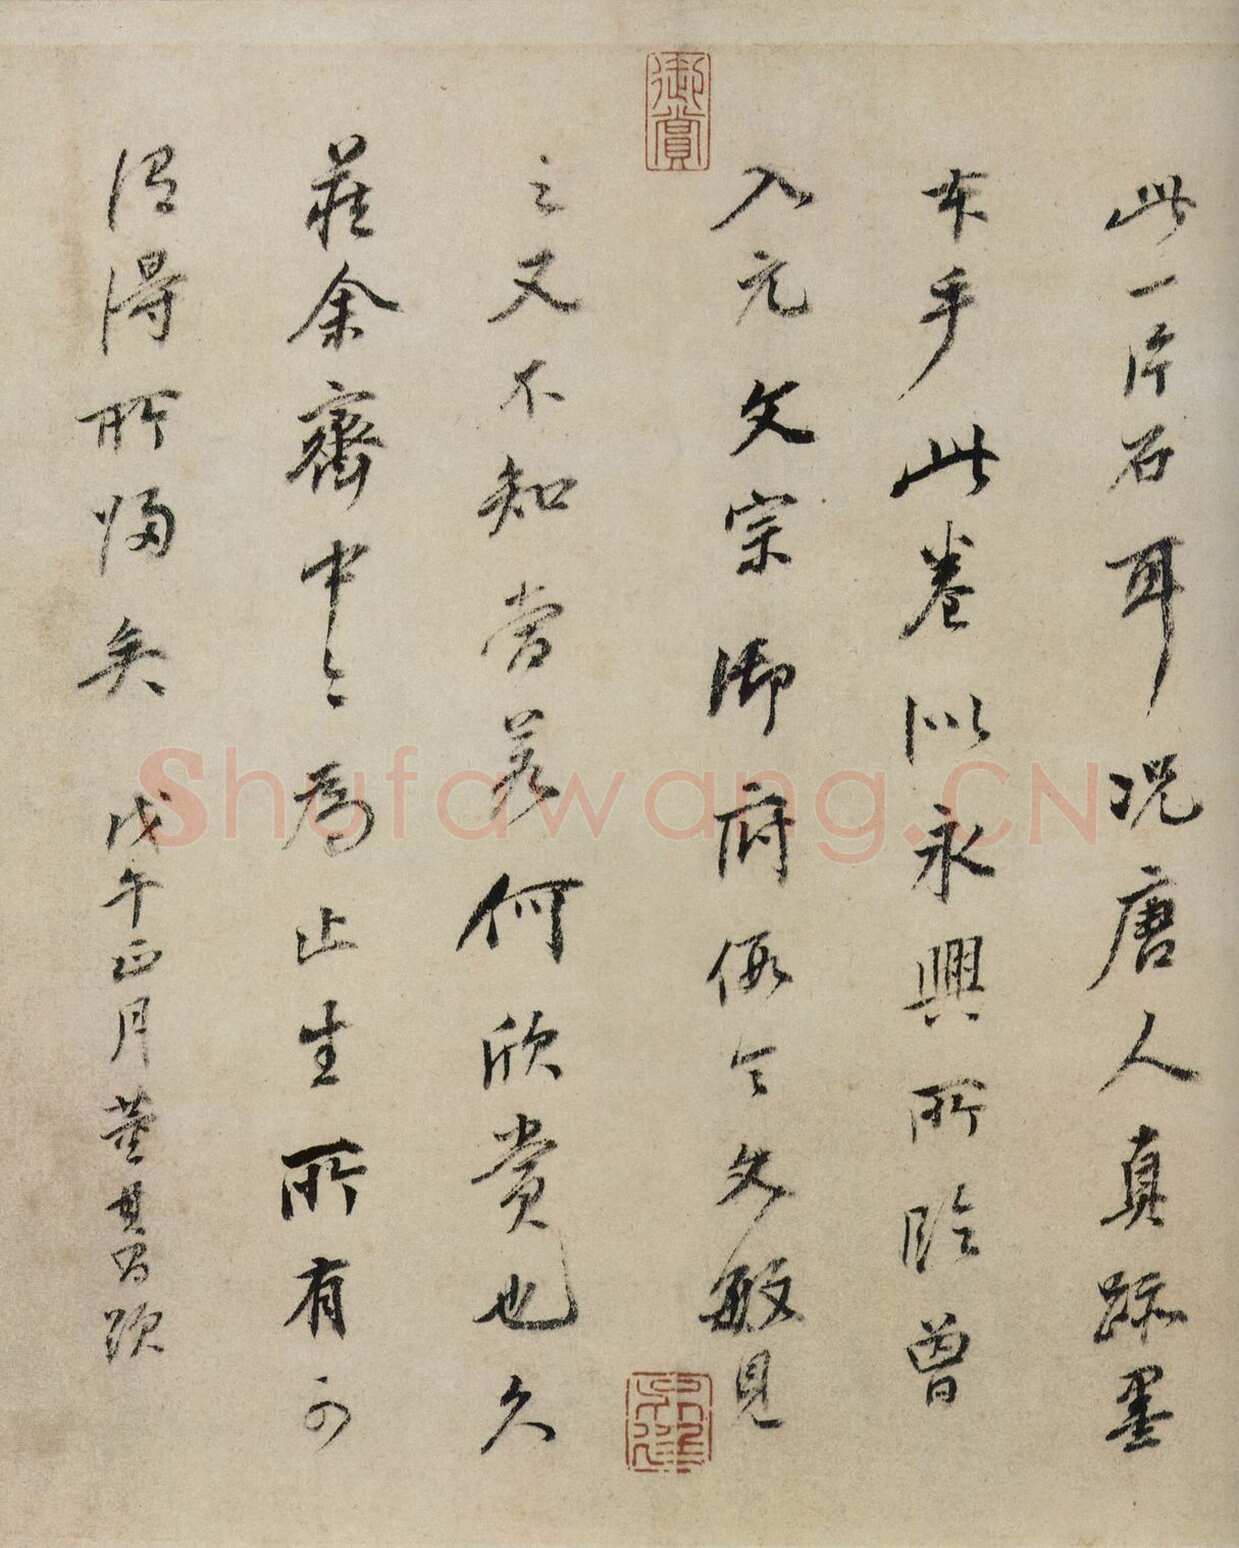 此一片石耳况唐人真跡墨
本手此卷似永興所臨曾
入元文宗御府假令文敏見
之又不知當若何欣賞也久
藏余齋中今為止生所有可
謂得所歸矣 戊午正月董其昌跋
御賞
Shufawang.CN